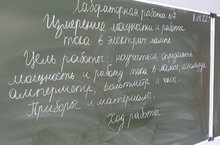 Лабораторная работа №7
Измерение мощности и работы
тока в электрич лампе.
Цель работы: научиться определять
мощность и работу тока в лампе, используя
амперметр, вольтметр и часы.
Приборы и материалы:
Ход работы